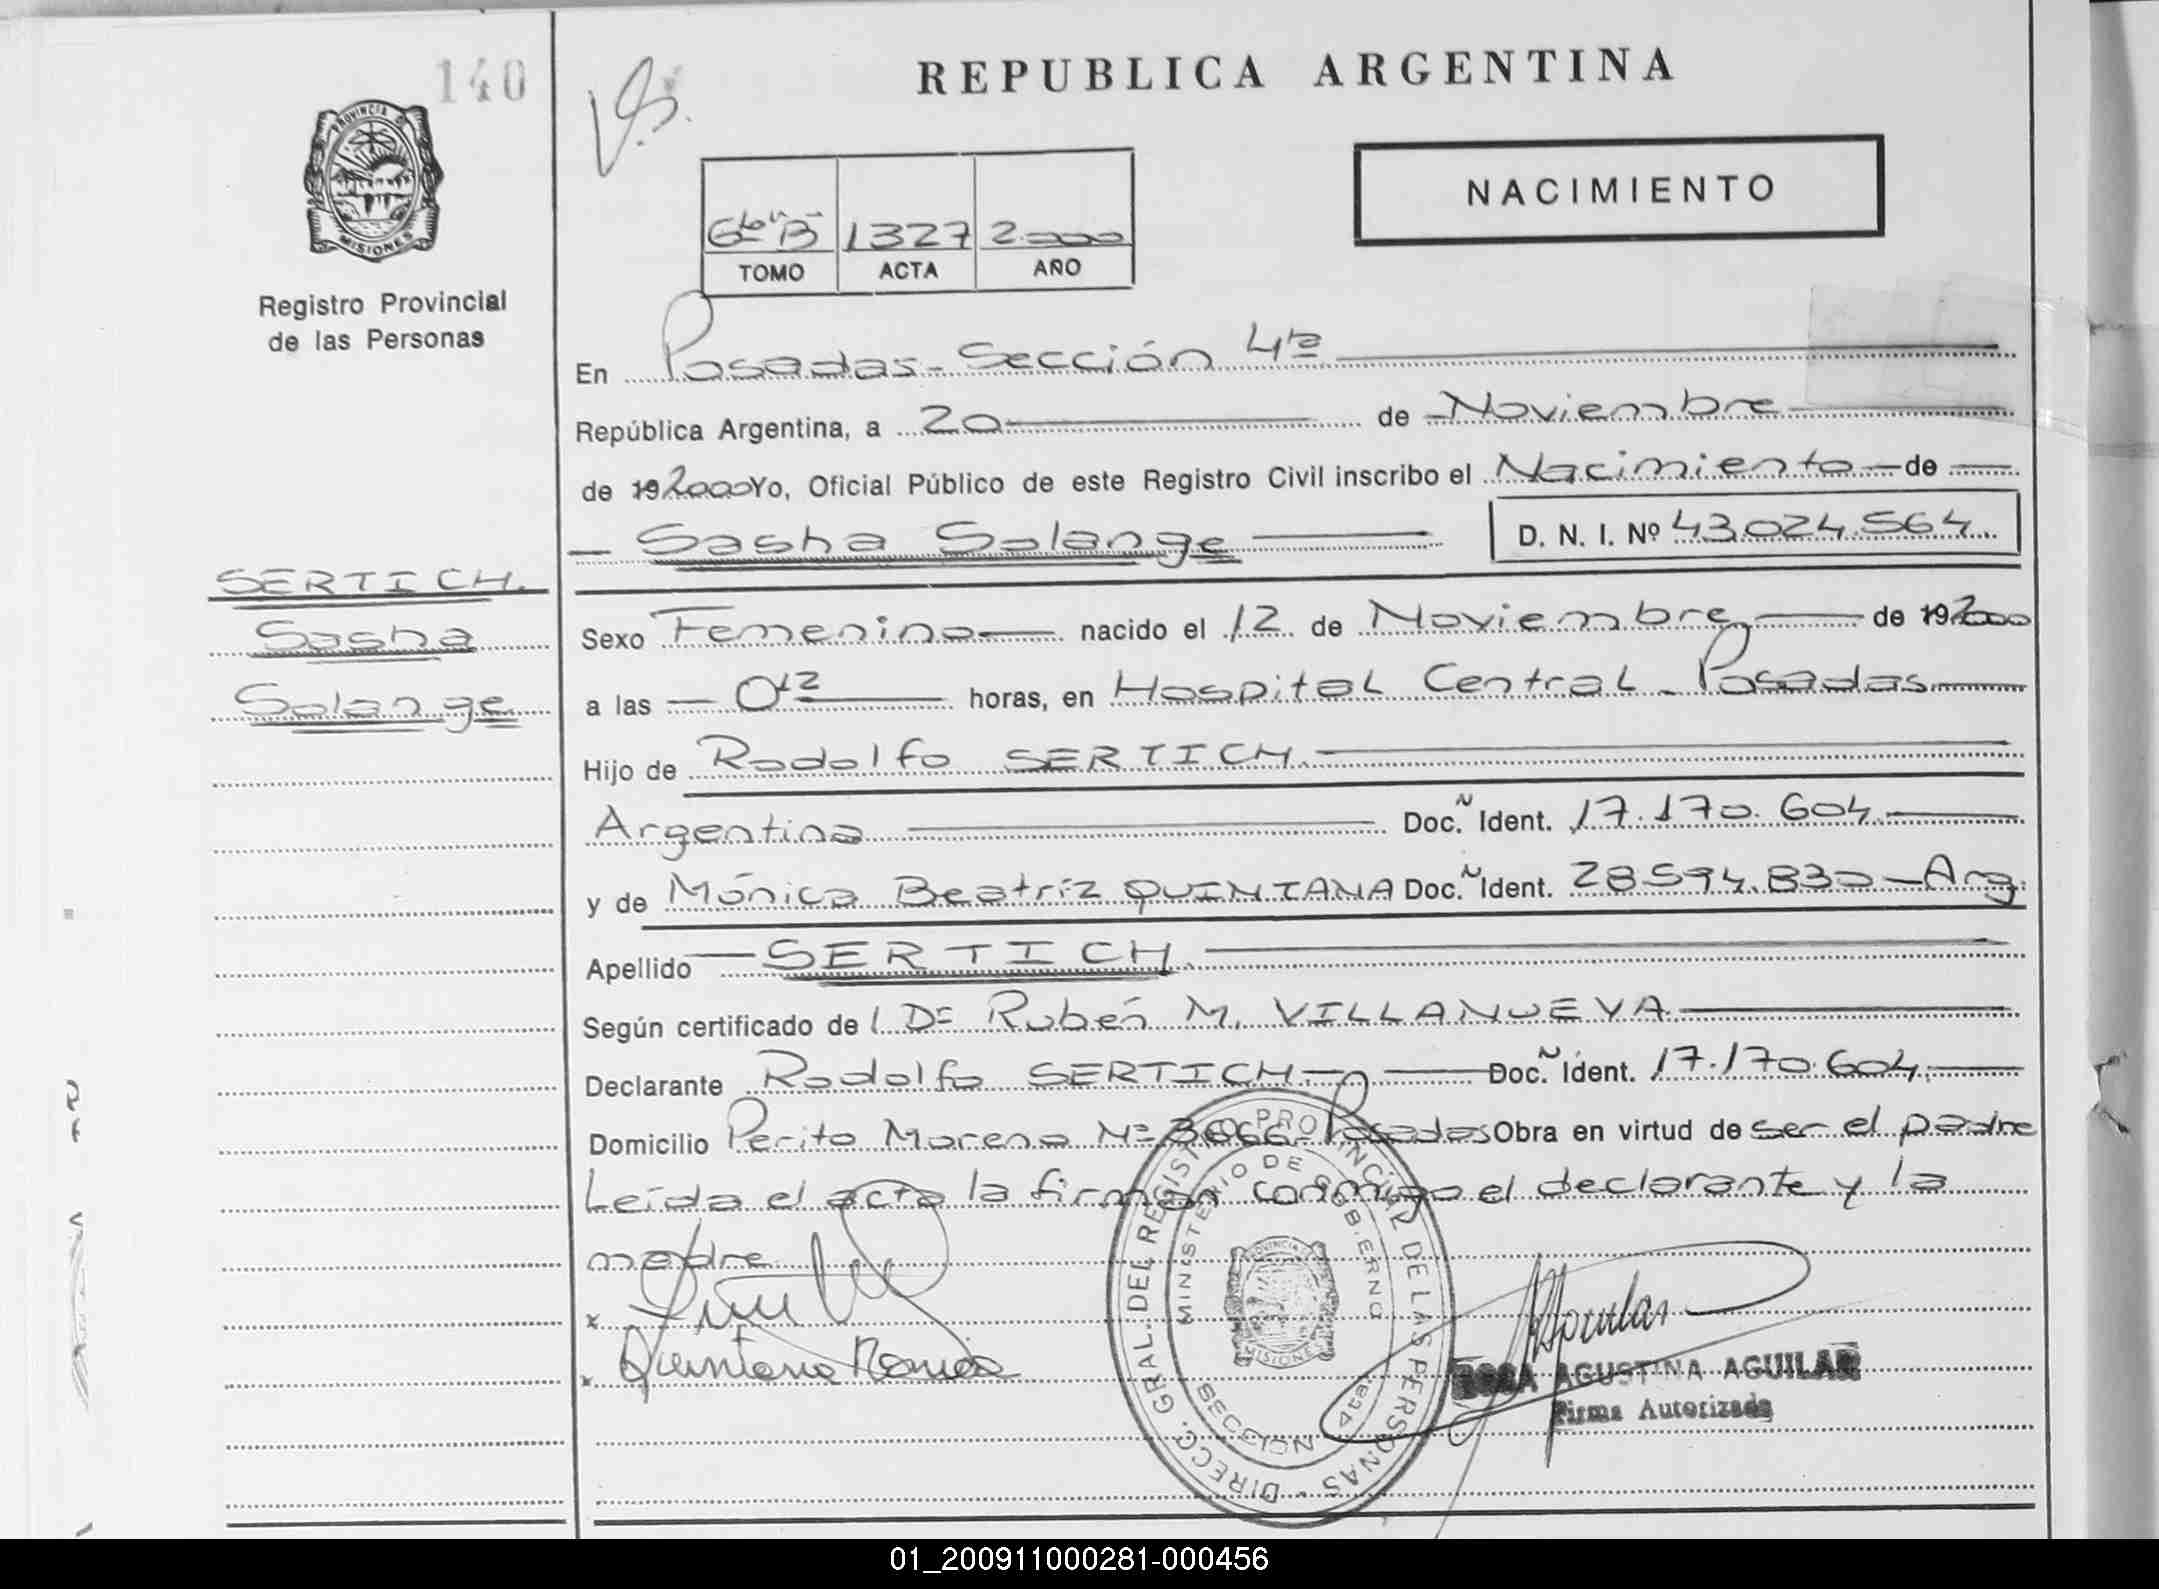 140
REPUBLICA ARGENTINA
PROVINCIA D
MISIONES
NACIMIENTO
6to "B" 1327 2.000
TOMO ACTA AÑO
Registro Provincial
de las Personas
En Posadas - Sección 4ta
República Argentina, a 20 de Noviembre
de 19 2000 Yo, Oficial Público de este Registro Civil inscribo el Nacimiento de
Sasha Solange D. N. I. Nº 43.024.564
SERTICH.
Sasha
Solange
Sexo Femenino nacido el 12 de Noviembre de 19 2000
a las horas, en Hospital Central - Posadas
Hijo de Rodolfo SERTICH.
Argentina Doc. N Ident. 17.170.604
y de Mónica Beatríz QUINTANA Doc. N Ident. 28.594.830 - Arg.
Apellido SERTICH.
Según certificado del Dr Rubén M. VILLANUEVA
Declarante Rodolfo SERTICH - Doc. N Ident. 17.170.604
Domicilio Perito Moreno Nº 3066 - Posadas Obra en virtud de ser el padre
Leída el acta la firman conmigo el declarante y la
madre
x
x Quintana Monica
DIRECC. GRAL. DEL REGISTRO PROVINCIAL DE LAS PERSONAS
MINISTERIO DE GOBIERNO
PROVINCIA
MISIONES
SECCION 4ta.
ROSA AGUSTINA AGUILAR
Firma Autorizada
01_200911000281-000456